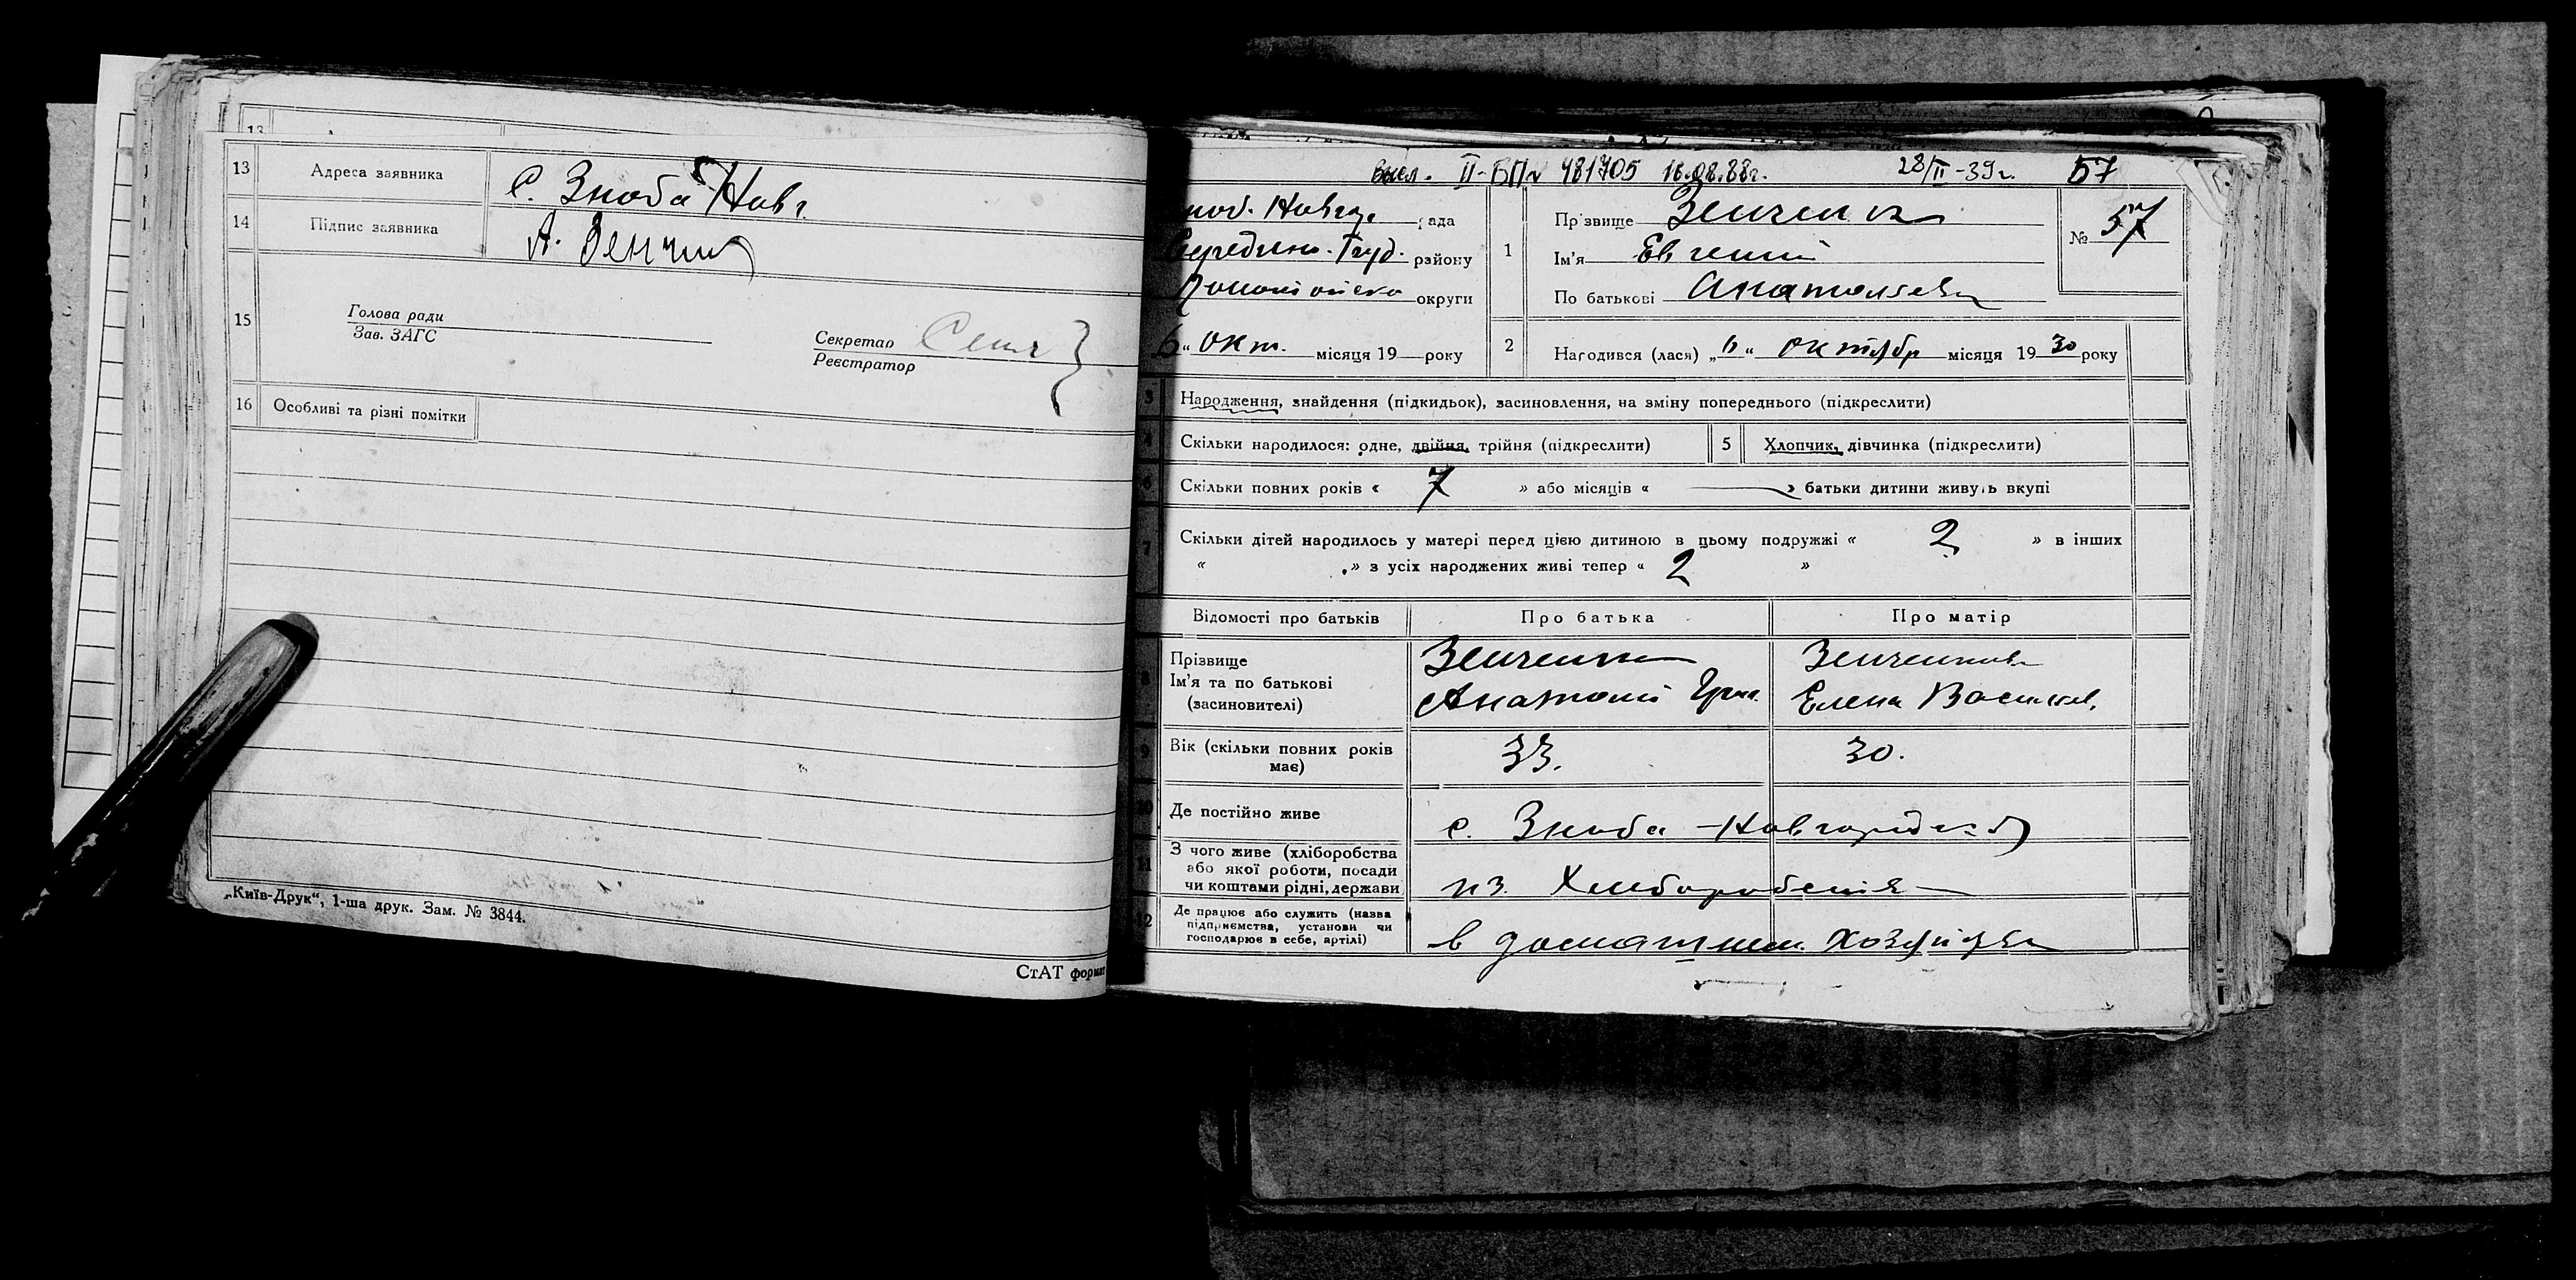 13
13 Адреса заявника С. Зноба Новг.
14 Підпис заявника А. Зенчен
15 Голова ради
Зав. ЗАГС
Секретар
Реєстратор
16 Особливі та різні помітки
„Київ-Друк“, 1-ша друк. Зам. № 3844.
СтАТ формат
II-БП № 481705 16.08.88г. 28/II-39г. 57
Новгор. рада
Середино-Буд. району
округи
6 „ окт. місяця 19 року
1 Прізвище Зенченко
Ім'я Евгений
По батькові Анатольев
№ 57
2 Народився (лася) „ 6 “ октябр місяця 19 30 року
3 Народження, знайдення (підкидьок), засиновлення, на зміну попереднього (підкреслити)
4 Скільки народилося: одне, двійня, трійня (підкреслити) 5 Хлопчик, дівчинка (підкреслити)
6 Скільки повних років « 7 » або місяців « — » батьки дитини живуть вкупі
7 Скільки дітей народилось у матері перед цією дитиною в цьому подружжі « 2 » в інших
« » з усіх народжених живі тепер « 2 »
Відомості про батьків Про батька Про матір
8 Прізвище
Ім'я та по батькові
(засиновителі)
Зенченко
Анатолий Григ.
Зенченкова
Елена Васильев.
9 Вік (скільки повних років має) 33. 30.
10 Де постійно живе с. Зноба-Новгородская
11 З чого живе (хліборобства
або якої роботи, посади
чи коштами рідні, держави
из Хлеборобства
12 Де працює або служить (назва
підприємства, установи чи
господарює в себе, артілі)
в домашнем хозяйстве